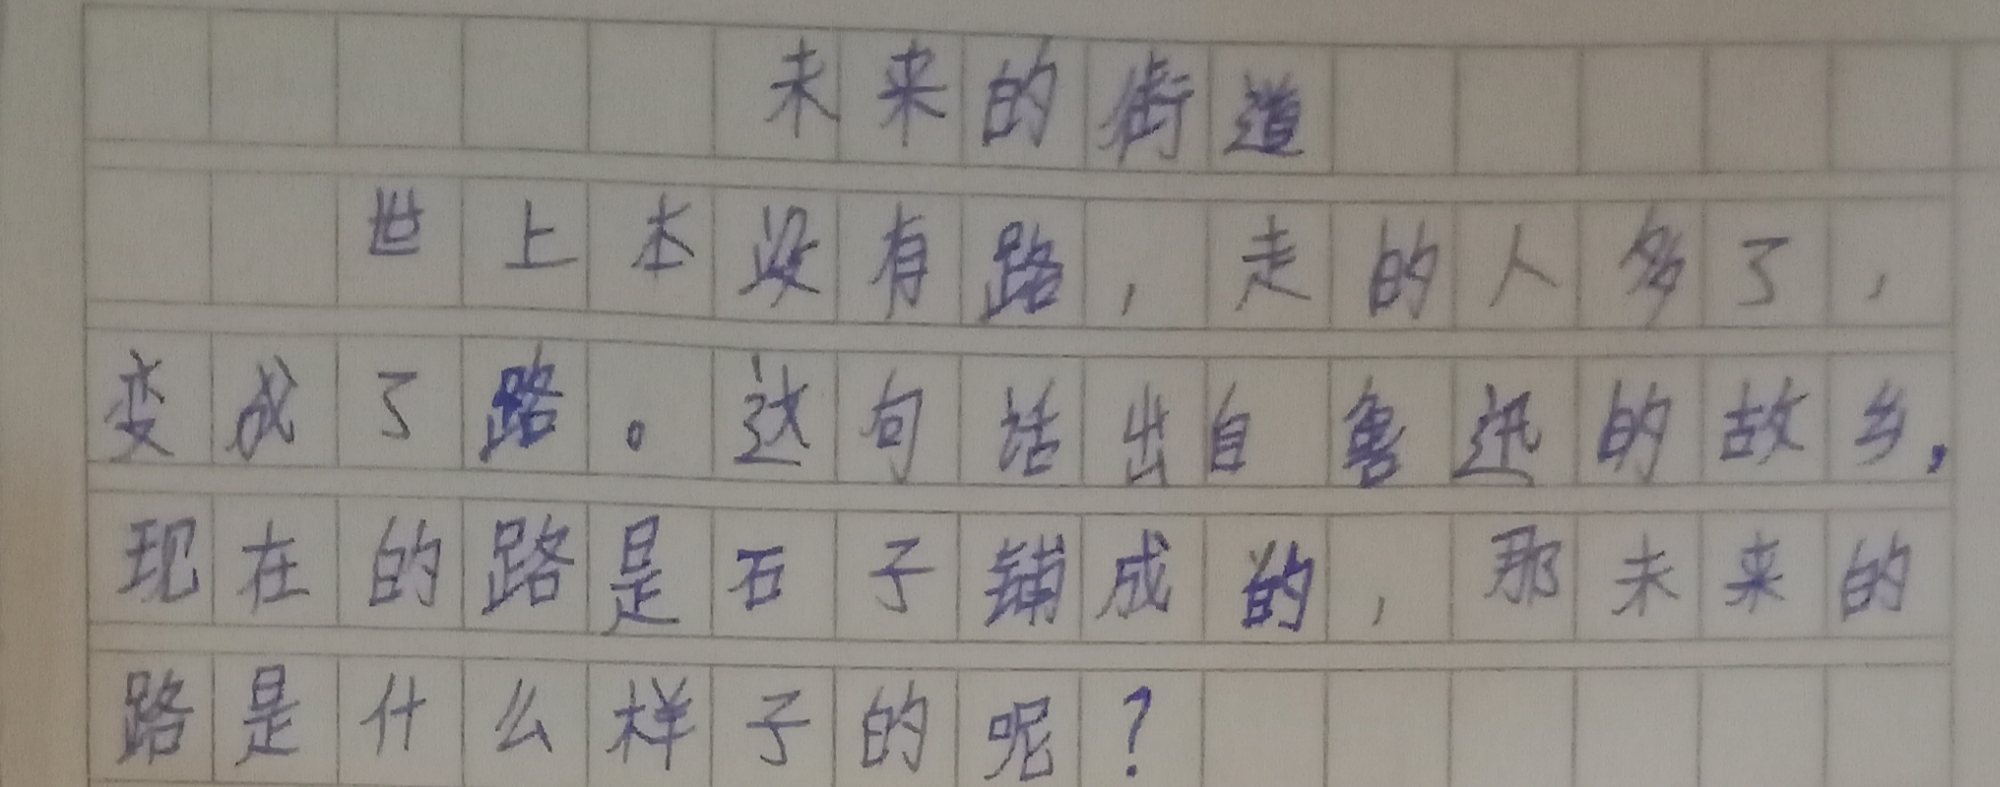 未来的街道
世上本没有路，走的人多了，
变成了路。这句话出自鲁迅的故乡，
现在的路是石子铺成的，那未来的
路是什么样子的呢？